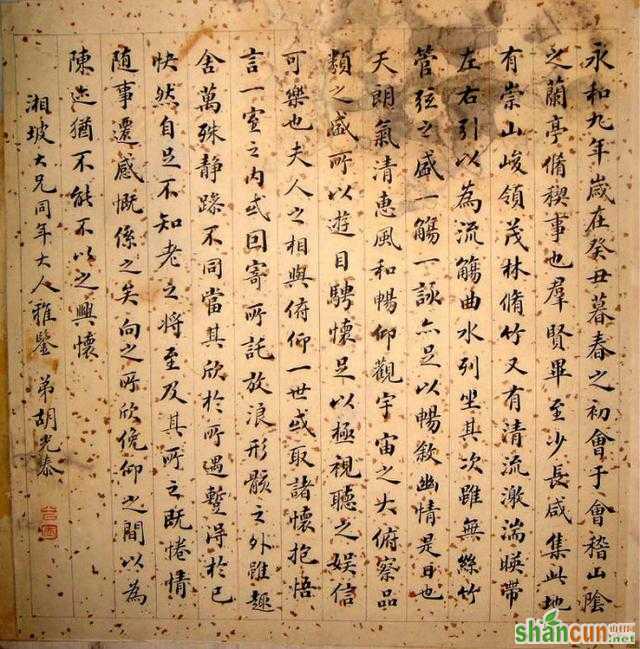 永和九年歲在癸丑暮春之初會于會稽山陰
之蘭亭脩稧事也羣賢畢至少長咸集此地
有崇山峻領茂林脩竹又有清流激湍暎帶
左右引以為流觴曲水列坐其次雖無絲竹
管弦之盛一觴一詠亦足以暢敘幽情是日也
天朗氣清惠風和暢仰觀宇宙之大俯察品
類之盛所以遊目騁懷足以極視聽之娛信
可樂也夫人之相與俯仰一世或取諸懷抱悟
言一室之内或因寄所託放浪形骸之外雖趣
舍萬殊静躁不同當其欣於所遇蹔得於己
快然自足不知老之將至及其所之既惓情
随事遷感慨係之矣向之所欣俛仰之間以為
陳迹猶不能不以之興懷
湘坡大兄同年大人雅鑒 弟胡光泰
shancun
.net